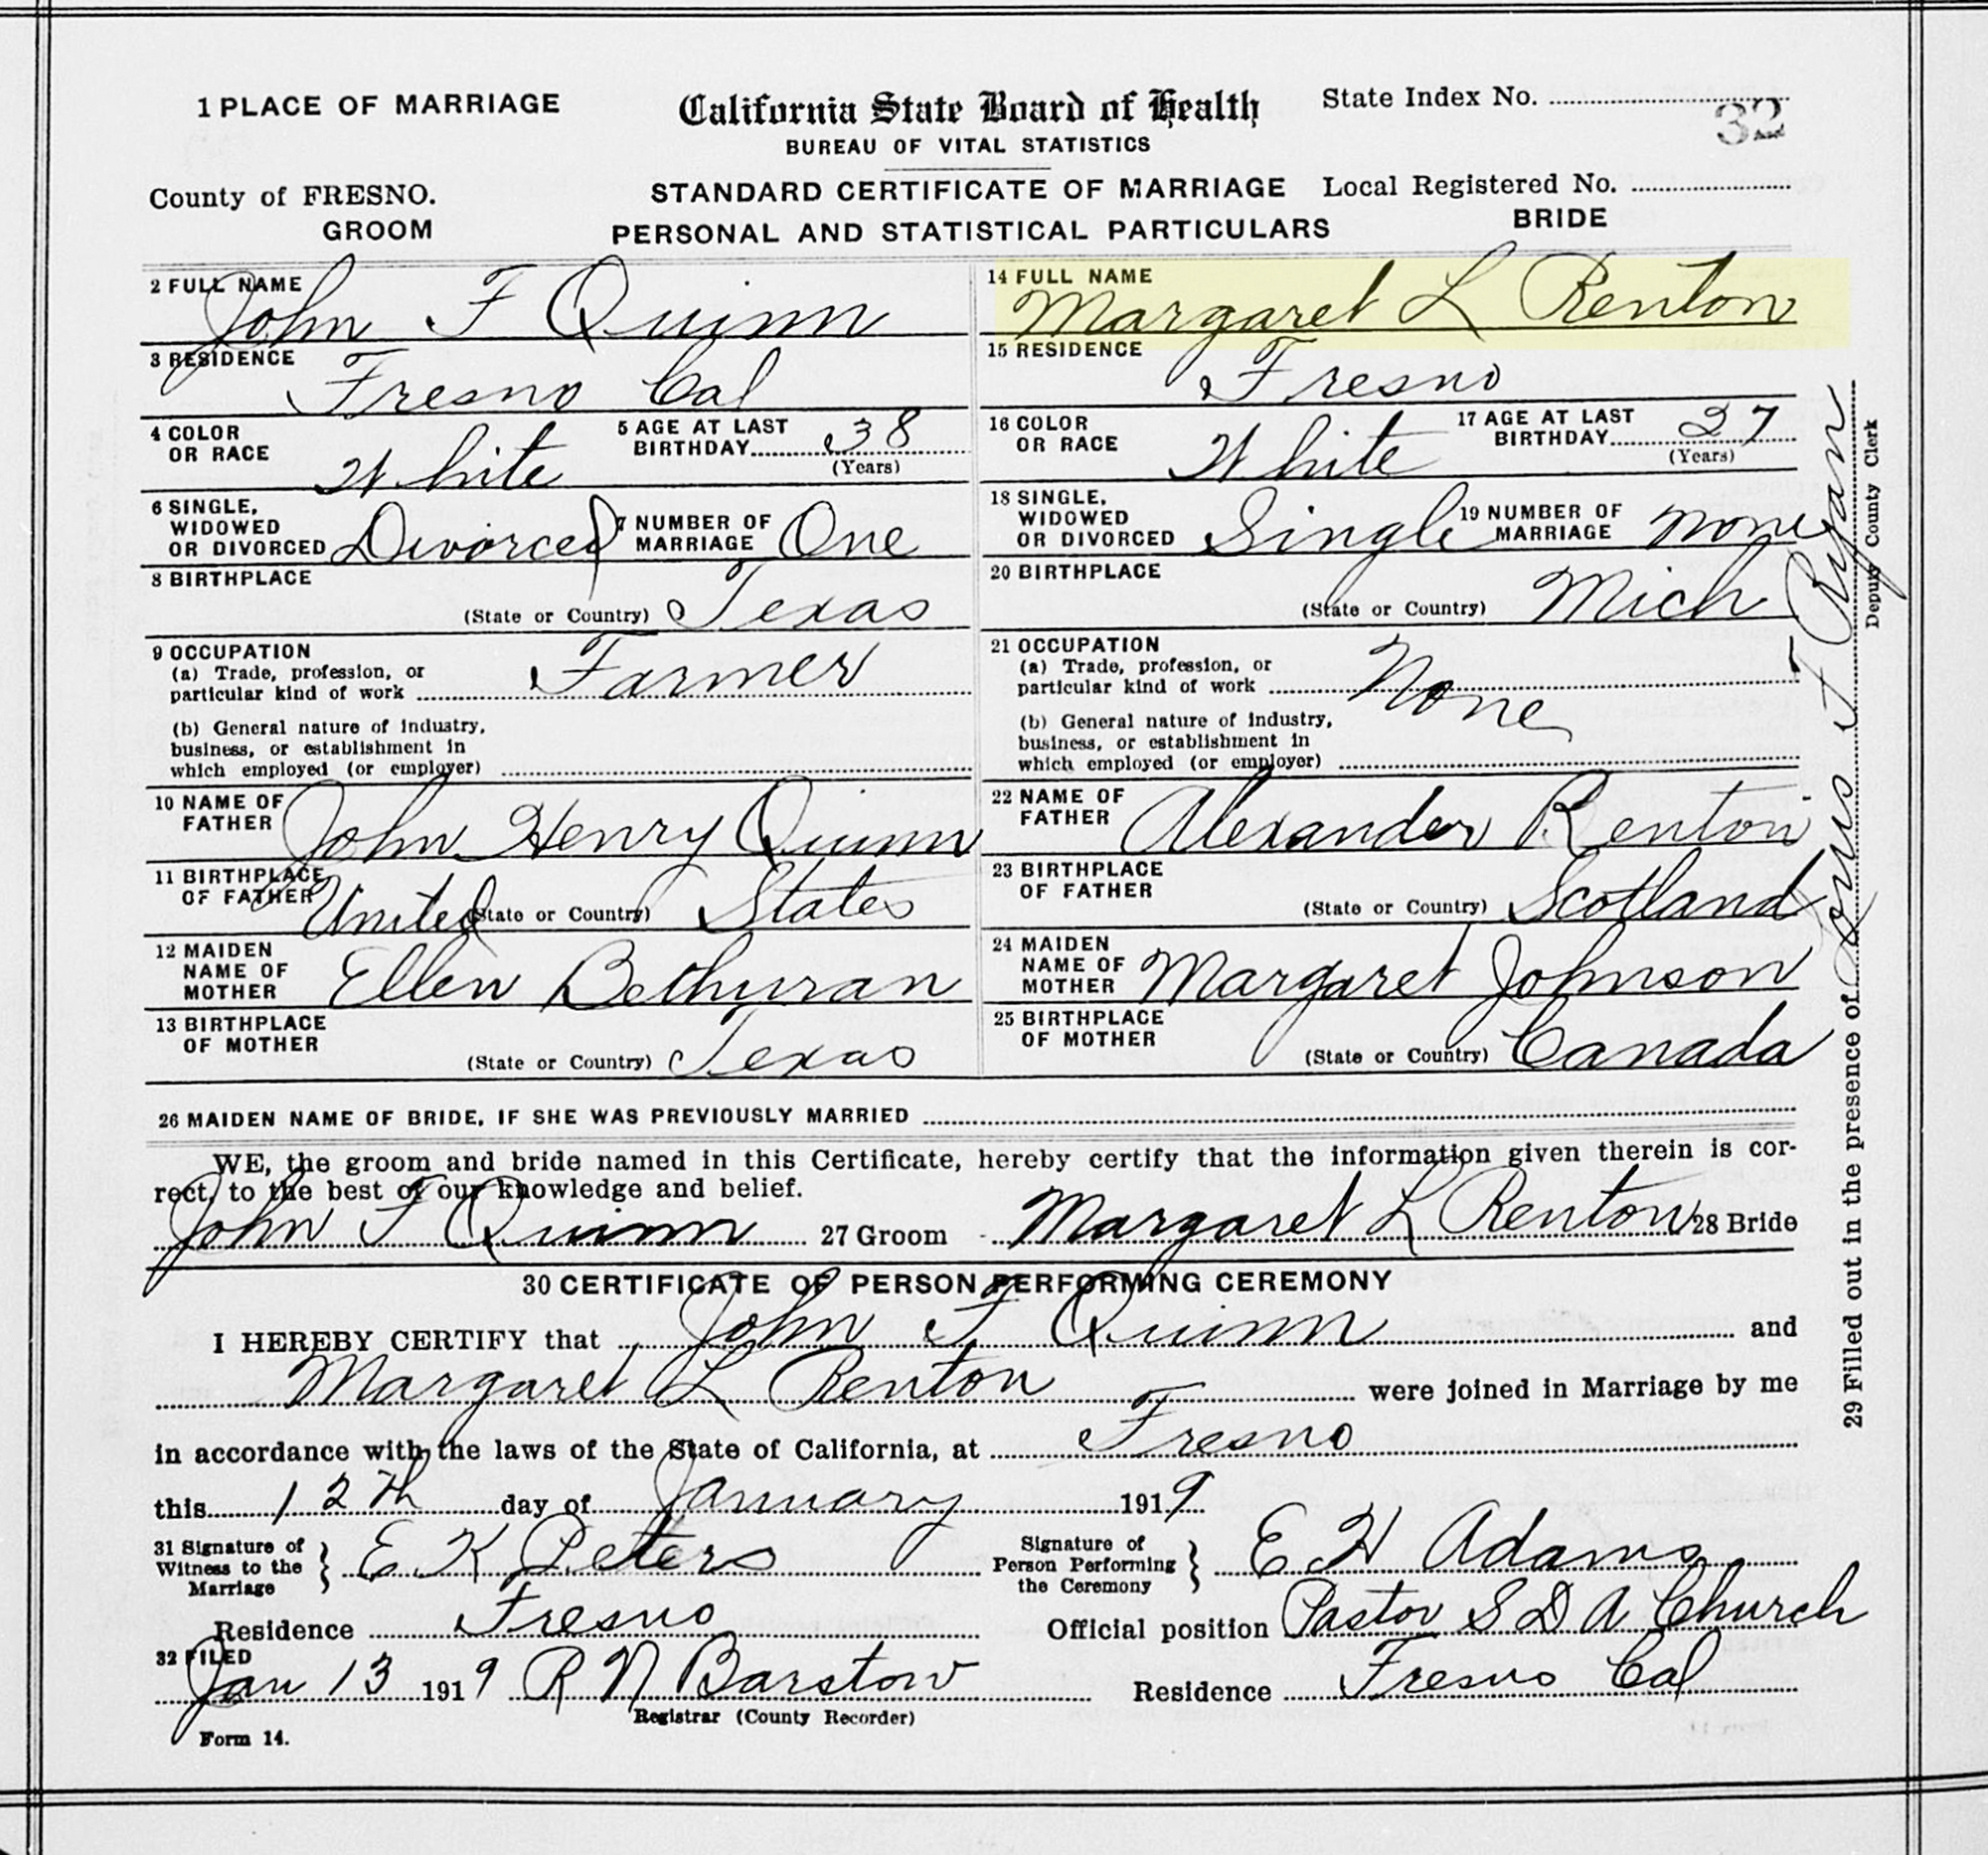 1 PLACE OF MARRIAGE
California State Board of Health
State Index No.
32
BUREAU OF VITAL STATISTICS
County of FRESNO.
STANDARD CERTIFICATE OF MARRIAGE
Local Registered No.
GROOM
PERSONAL AND STATISTICAL PARTICULARS
BRIDE
2 FULL NAME John F Quinn
14 FULL NAME Margaret L Renton
3 RESIDENCE Fresno Cal
15 RESIDENCE Fresno
4 COLOR OR RACE White
5 AGE AT LAST BIRTHDAY 38 (Years)
16 COLOR OR RACE White
17 AGE AT LAST BIRTHDAY 27 (Years)
6 SINGLE, WIDOWED OR DIVORCED Divorced
7 NUMBER OF MARRIAGE One
18 SINGLE, WIDOWED OR DIVORCED Single
19 NUMBER OF MARRIAGE None
8 BIRTHPLACE
(State or Country) Texas
20 BIRTHPLACE
(State or Country) Mich
9 OCCUPATION
(a) Trade, profession, or
particular kind of work Farmer
(b) General nature of industry,
business, or establishment in
which employed (or employer)
21 OCCUPATION
(a) Trade, profession, or
particular kind of work None
(b) General nature of industry,
business, or establishment in
which employed (or employer)
10 NAME OF FATHER John Henry Quinn
22 NAME OF FATHER Alexander Renton
11 BIRTHPLACE OF FATHER
(State or Country) United States
23 BIRTHPLACE OF FATHER
(State or Country) Scotland
12 MAIDEN NAME OF MOTHER Ellen Bethuran
24 MAIDEN NAME OF MOTHER Margaret Johnson
13 BIRTHPLACE OF MOTHER
(State or Country) Texas
25 BIRTHPLACE OF MOTHER
(State or Country) Canada
26 MAIDEN NAME OF BRIDE, IF SHE WAS PREVIOUSLY MARRIED
WE, the groom and bride named in this Certificate, hereby certify that the information given therein is cor-
rect, to the best of our knowledge and belief.
John F Quinn 27 Groom Margaret L Renton 28 Bride
30 CERTIFICATE OF PERSON PERFORMING CEREMONY
I HEREBY CERTIFY that John F Quinn and
Margaret L Renton were joined in Marriage by me
in accordance with the laws of the State of California, at Fresno
this 12th day of January 1919
31 Signature of Witness to the Marriage } E K Peters
Signature of Person Performing the Ceremony } E H Adams
Residence Fresno
Official position Pastor S D A Church
32 FILED
Jan 13 1919 R N Barstow
Residence Fresno Cal
Registrar (County Recorder)
Form 14.
29 Filled out in the presence of Ryan
Deputy County Clerk